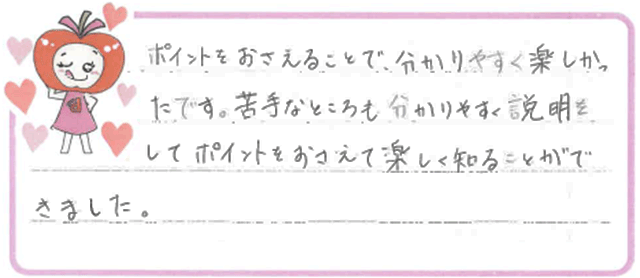 ポイントをおさえることで、分かりやすく楽しかっ
たです。苦手なところも分かりやすく説明を
してポイントをおさえて楽しく知ることがで
きました。